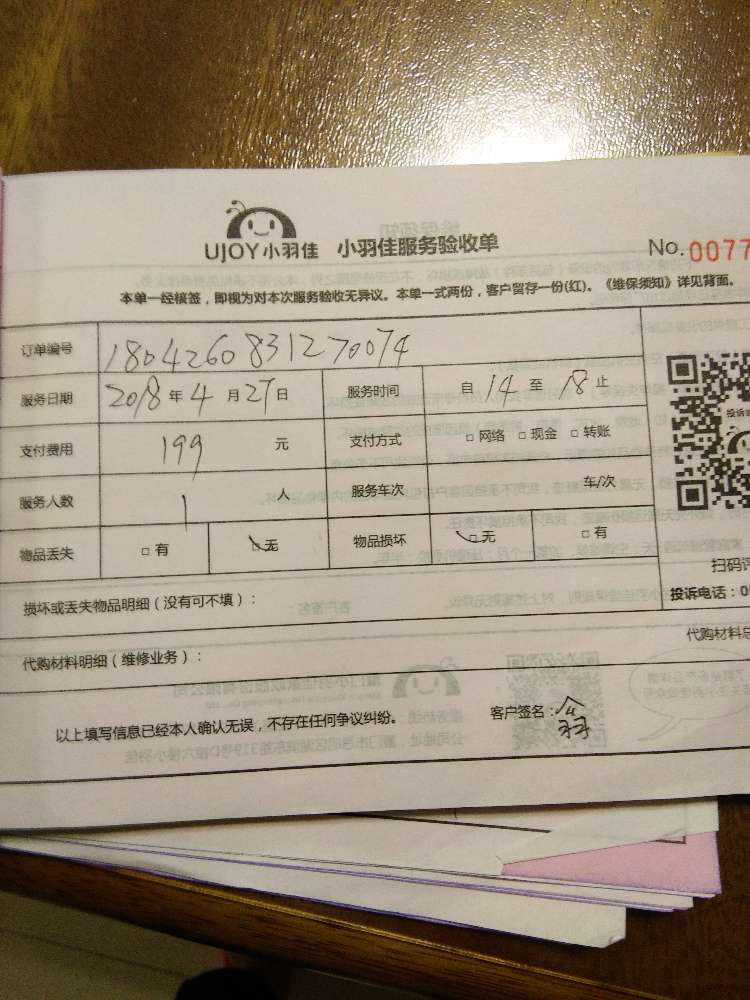 UJOY小羽佳 小羽佳服务验收单 No.0077
本单一经核签，即视为对本次服务验收无异议。本单一式两份，客户留存一份(红)。《维保须知》详见背面。
订单编号 1804260831270074
服务日期 2018年4月27日 服务时间 自14至18止
支付费用 199 元 支付方式 □网络 □现金 □转账
服务人数 1 人 服务车次 车/次
物品丢失 □有 □无 物品损坏 □无 □有
扫码
损坏或丢失物品明细（没有可不填）：
投诉电话：0
代购材料明细（维修业务）：
代购材料
以上填写信息已经本人确认无误，不存在任何争议纠纷。 客户签名：翁